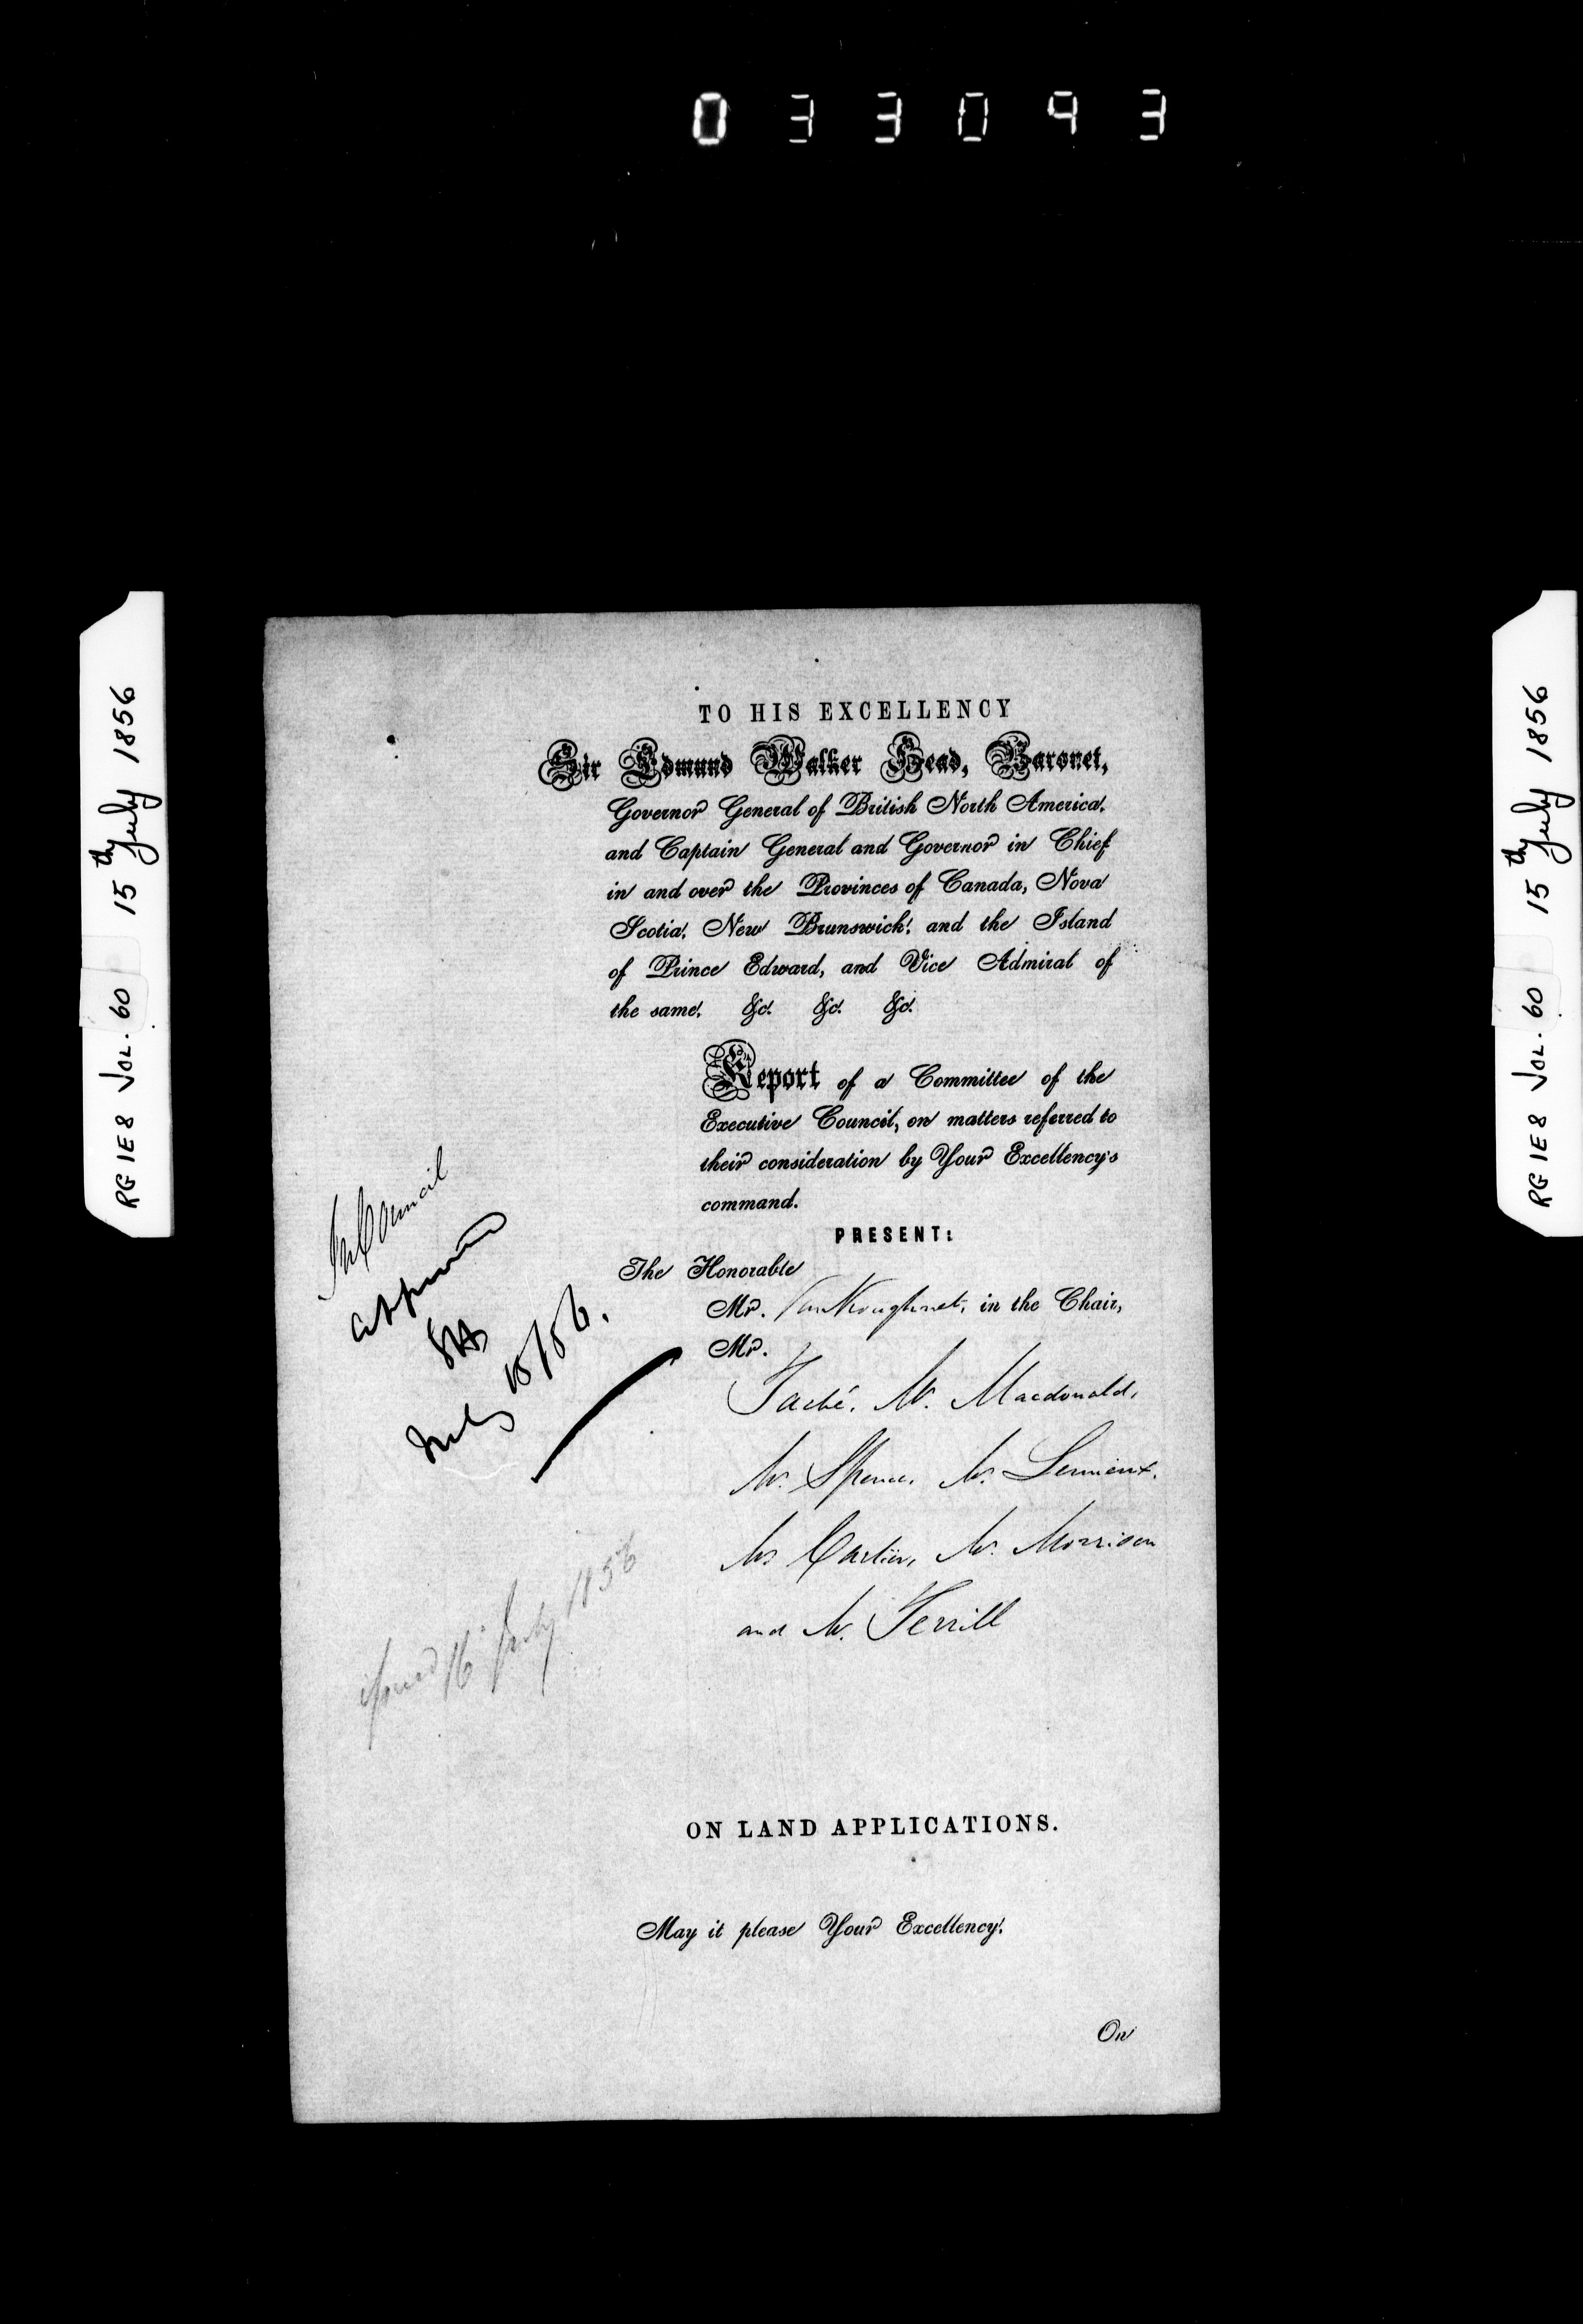 033093
RG 1E8 VOL. 60 15th July 1856
TO HIS EXCELLENCY
Sir Edmund Walker Head, Baronet,
Governor General of British North America,
and Captain General and Governor in Chief
in and over the Provinces of Canada, Nova
Scotia, New Brunswick, and the Island
of Prince Edward, and Vice Admiral of
the same, &c. &c. &c.
Report of a Committee of the
Executive Council, on matters referred to
their consideration by Your Excellency's
command.
PRESENT:
The Honorable
Mr. VanKoughnet, in the Chair,
Mr.
Taché, Mr. Macdonald,
Mr. Spence, Mr. Lemieux,
Mr Cartier, Mr. Morrison
and Mr. Terrill
In Council
approved
July 15/56.
16 July 1856
ON LAND APPLICATIONS.
May it please Your Excellency,
On
RG 1E8 VOL. 60 15th July 1856